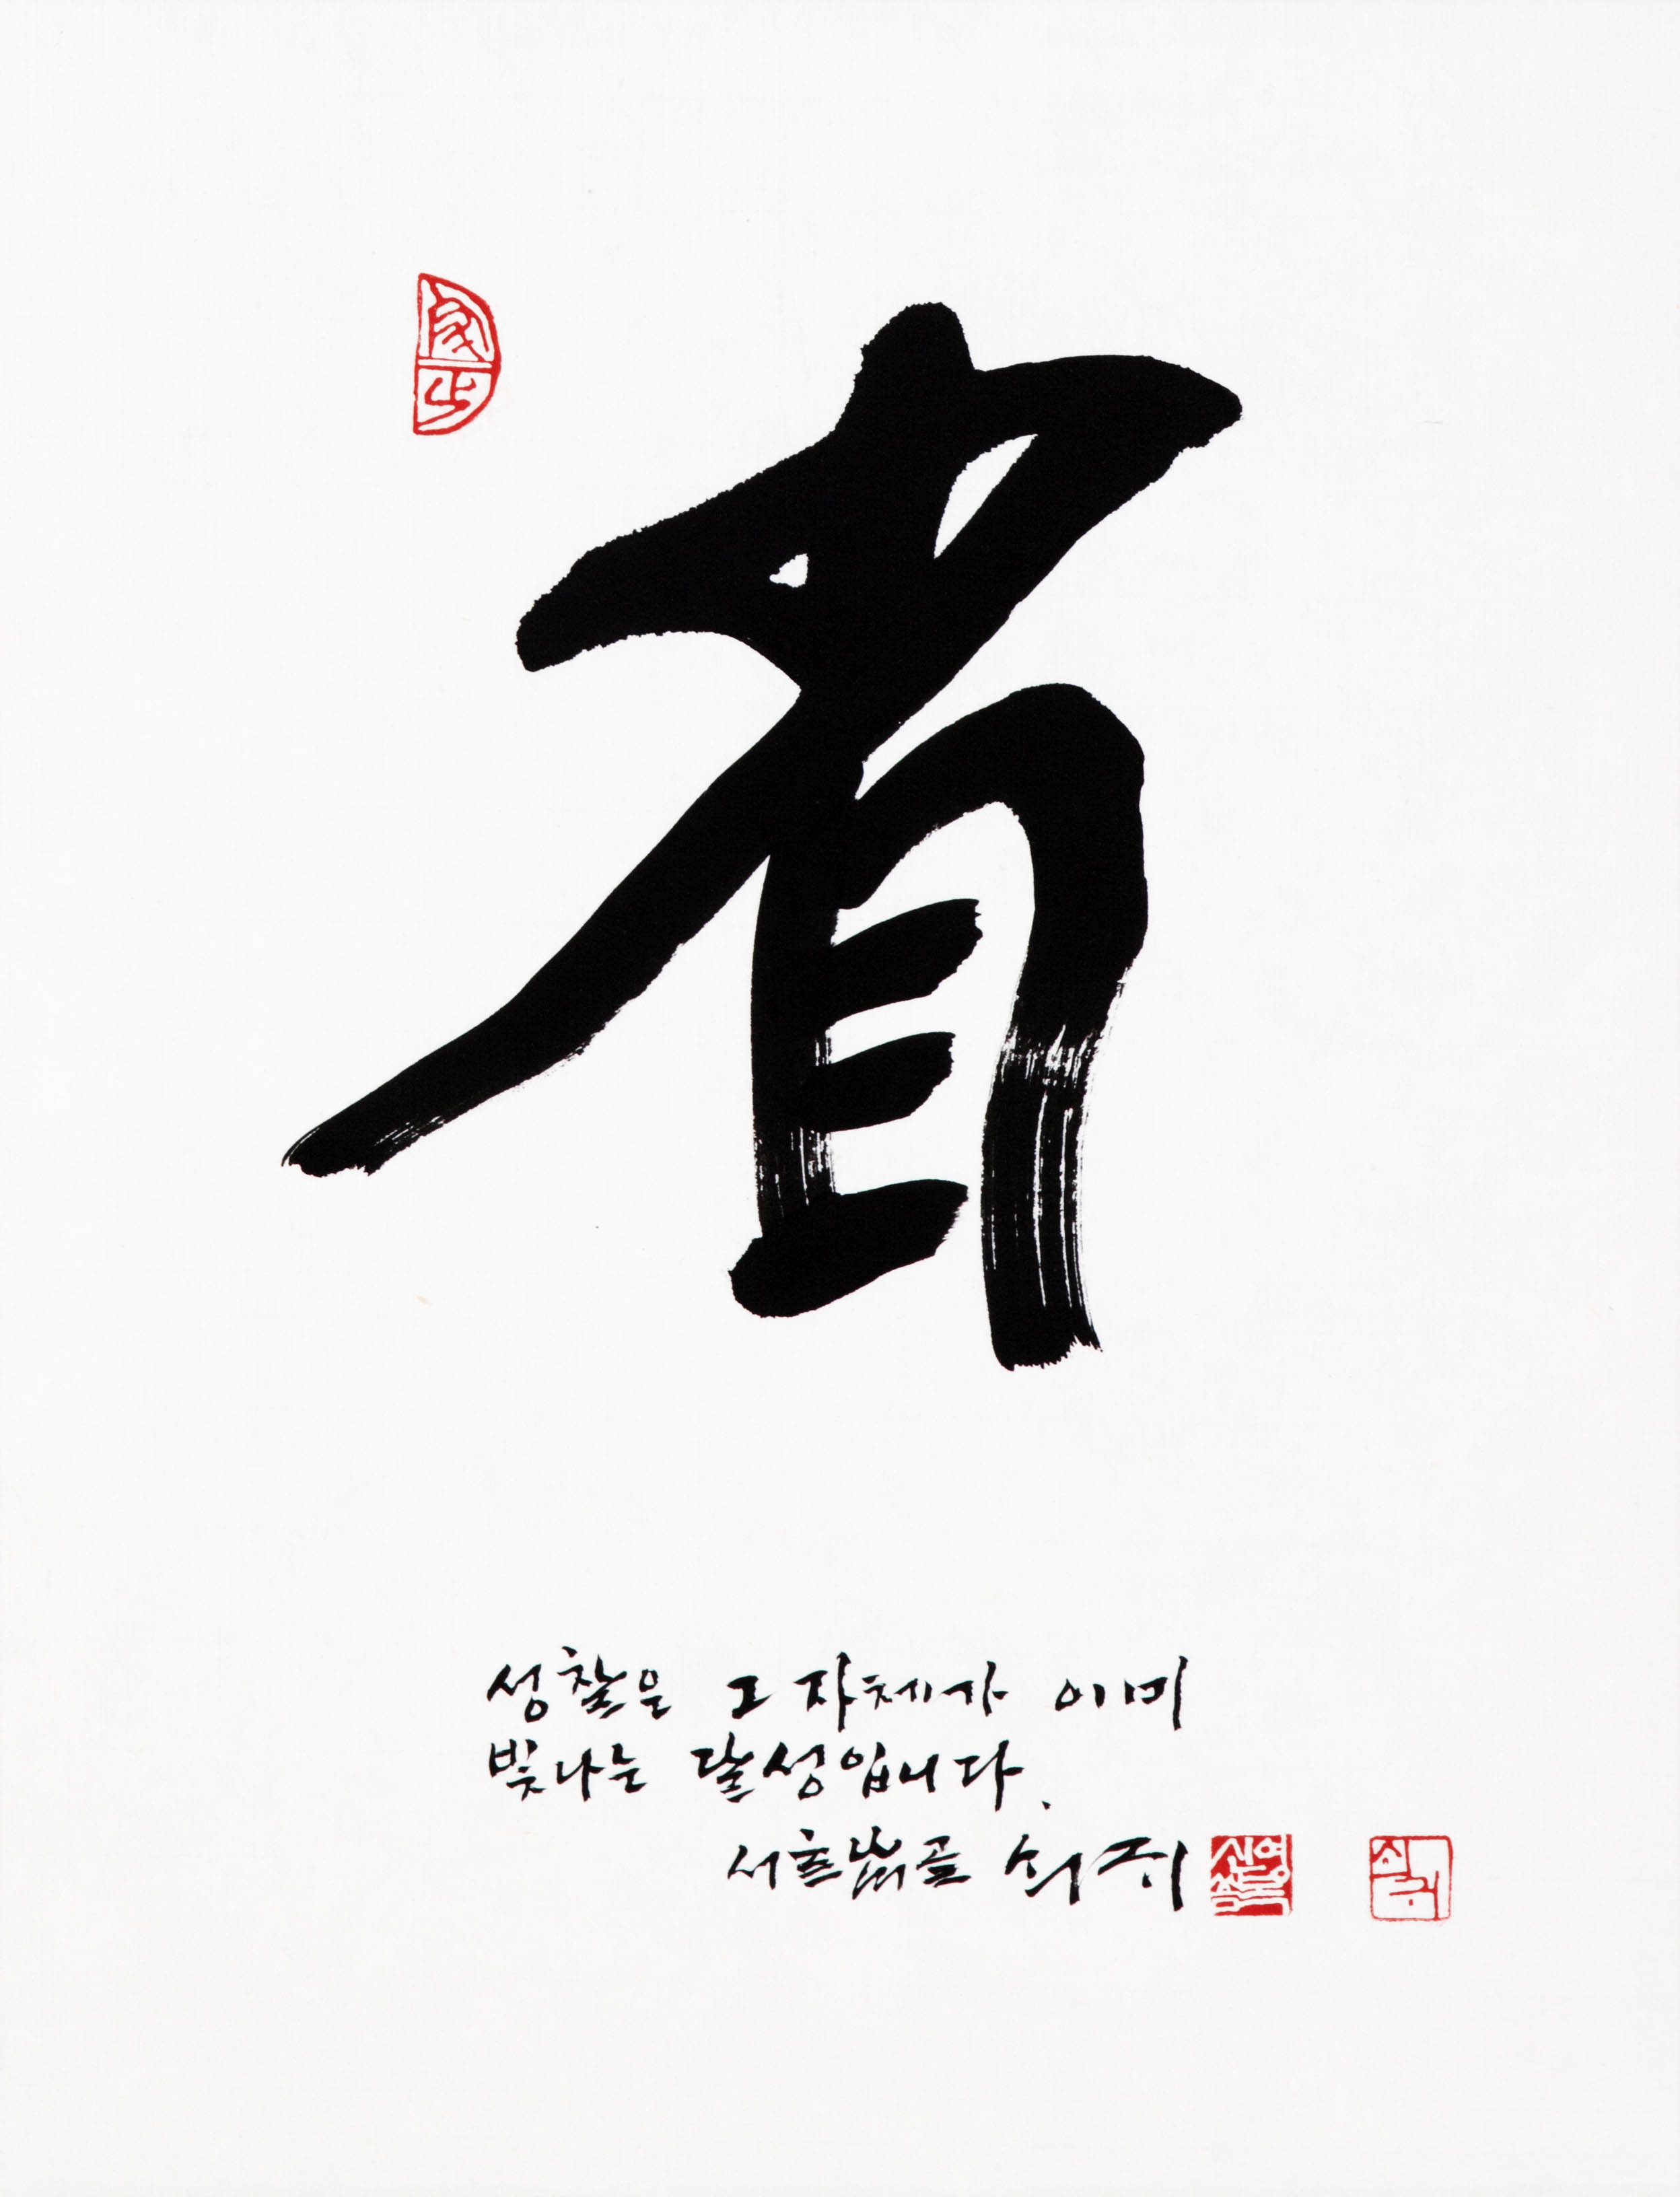 省
성찰은 그 자체가 이미
빛나는 달성입니다.
쇠귀